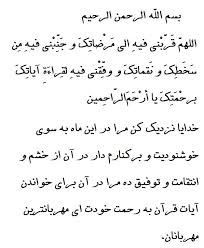 بسم الله الرحمن الرحیم
اللهمّ قرّبنی فیهِ الی مَرْضاتِکَ و جَنّبنی فیهِ مِن
سَخَطِکَ و نَقماتِکَ و وفّقنی فیهِ لقراءةِ آیاتِکَ
برحْمَتِکَ یا أرْحَمَ الرّاحِمین
خدایا نزدیک کن مرا در این ماه به سوی
خوشنودیت و برکنارم دار در آن از خشم و
انتقامت و توفیق ده مرا در آن برای خواندن
آیات قرآن به رحمت خودت ای مهربانترین
مهربانان.